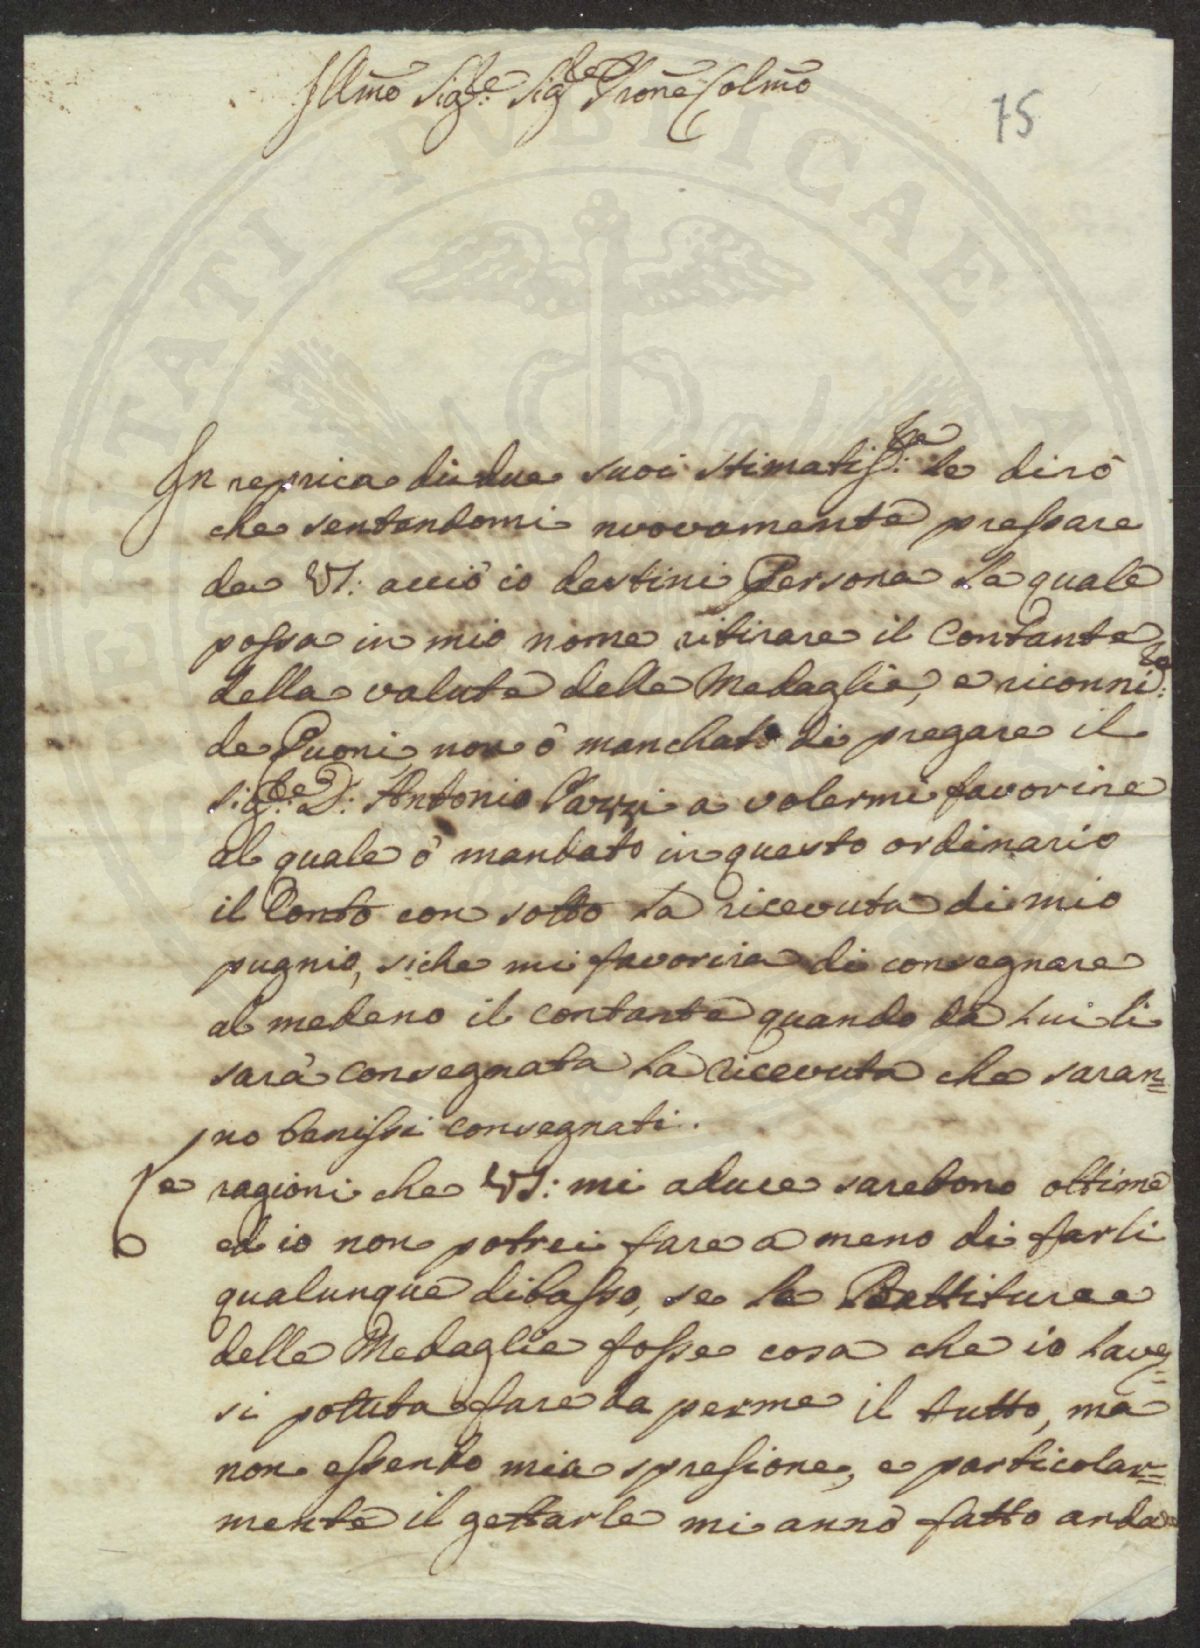 Illmo Sigre: Sigre Prone Colmo
75
In reprica di due suoi stimatisme: le dirò
che sentendomi nuovamente pressare
da VS: acciò io destini Persona la quale
possa in mio nome ritirare il Contante
della valuta delle Medaglie, e
de Puoni non ò manchato di pregare il
Sigre: D: Antonio a volermi favorire
al quale ò mandato in questo ordinario
il Conto con sotto la ricevuta di mio
pugnio, siche mi favorira di consegnare
al medeno il contante quando da Lui li
sarà consegnata la ricevuta che saran=
no benissi consegnati.
Le ragioni che VS: mi aduce sarebono ottime
ed io non potrei fare a meno di farli
qualunque dibasso, se la Battitura
delle Medaglie fosse cosa che io laves=
si potuta fare da perme il tutto, ma
non essendo mia spresione, e particolar=
mente il gettarle mi anno fatto anda=
PERITATI PVBLICAE